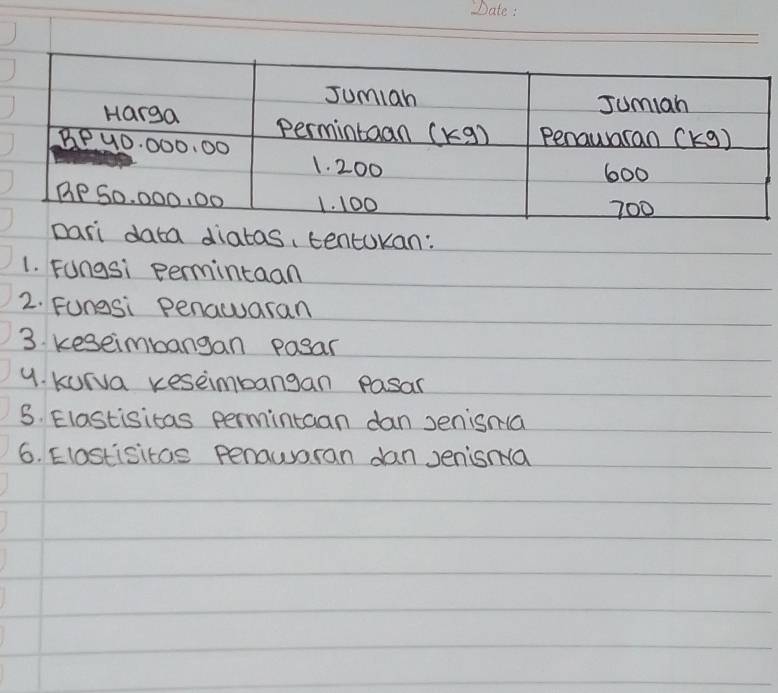 Date :
Harga Jumlah Permintaan (kg) Jumlah Penawaran (kg)
RP 40.000,00 1.200 600
RP 50.000,00 1.100 700
Dari data diatas, tentukan:
1. Fungsi Permintaan
2. Fungsi Penawaran
3. Keseimbangan Pasar
4. Kurva Keseimbangan Pasar
5. Elastisitas Permintaan dan Jenisnya
6. Elastisitas Penawaran dan Jenisnya